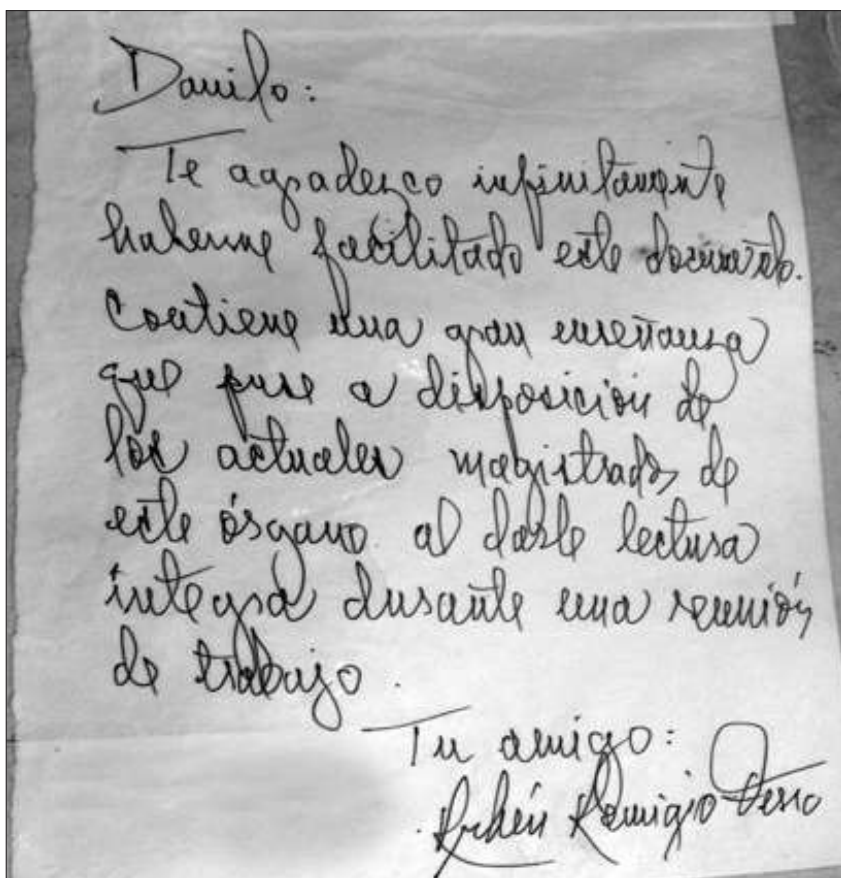 Danilo:
Te agradezco infinitamente
haberme facilitado este documento.
Contiene una gran enseñanza
que puse a disposición de
los actuales magistrados de
este órgano al darle lectura
íntegra durante una reunión
de trabajo.
Tu amigo:
Rubén Remigio Ferro